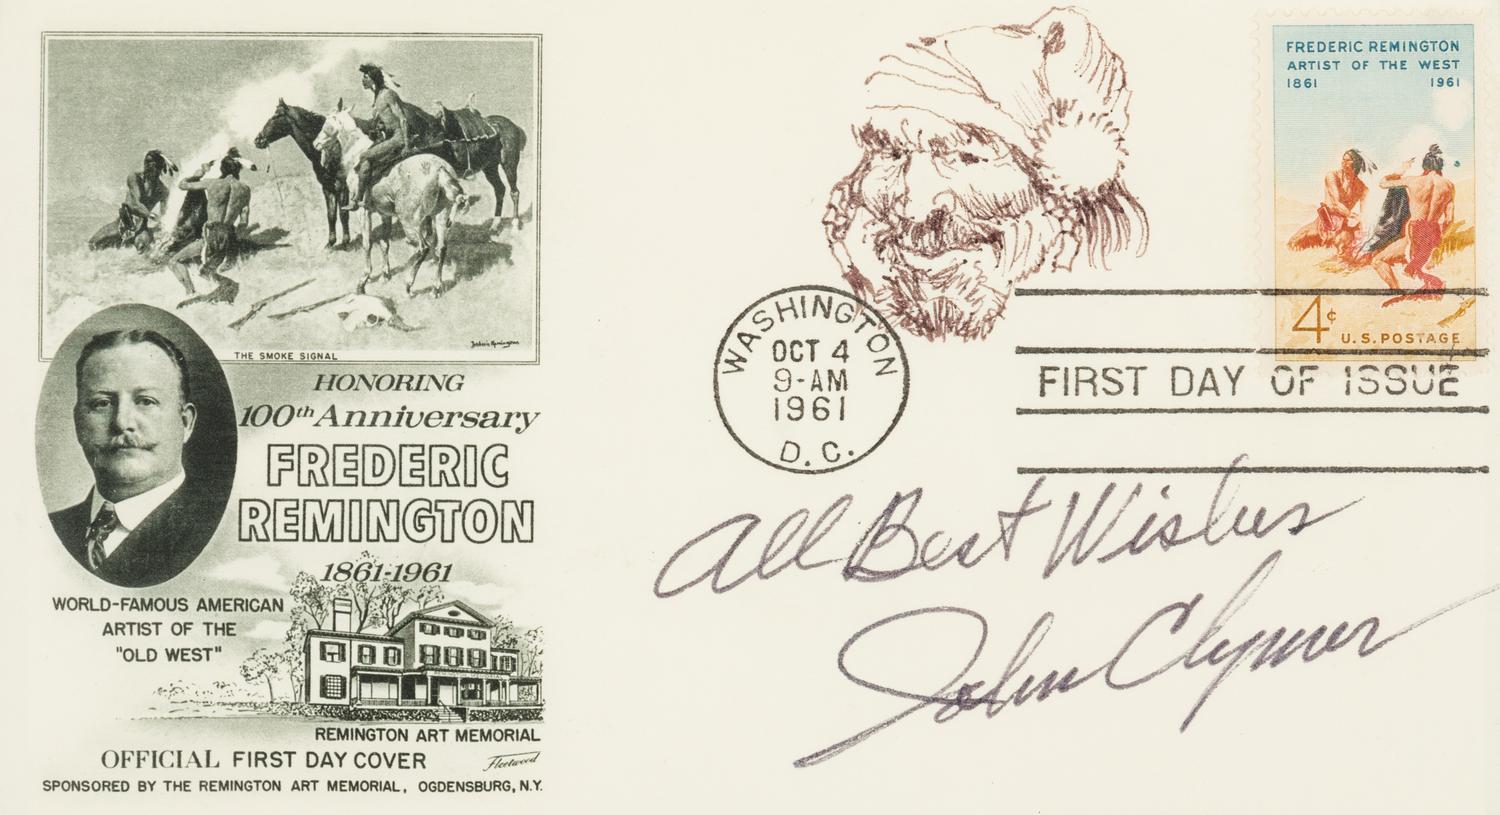 Frederic Remington
THE SMOKE SIGNAL
HONORING
100th Anniversary
FREDERIC
REMINGTON
1861-1961
WORLD-FAMOUS AMERICAN
ARTIST OF THE
"OLD WEST"
REMINGTON ART MEMORIAL
OFFICIAL FIRST DAY COVER
Fleetwood
SPONSORED BY THE REMINGTON ART MEMORIAL, OGDENSBURG, N.Y.
FREDERIC REMINGTON
ARTIST OF THE WEST
1861 1961
4¢ U.S. POSTAGE
WASHINGTON
OCT 4
9-AM
1961
D.C.
FIRST DAY OF ISSUE
All Best Wishes
John Clymer